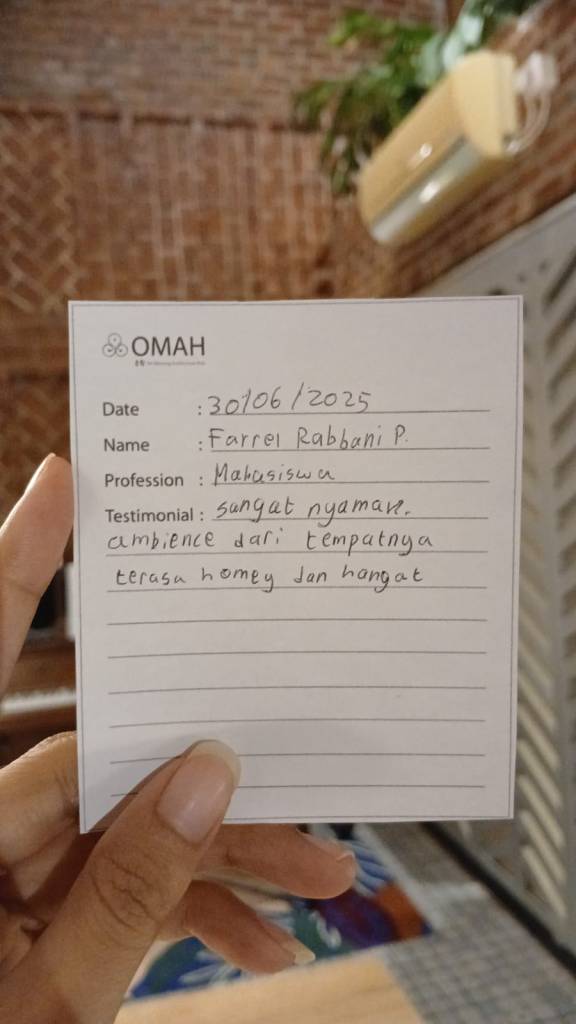 OMAH
Date : 30/06/2025
Name : Farrel Rabbani P.
Profession : Mahasiswa
Testimonial : sangat nyaman.
ambience dari tempatnya
terasa homey dan hangat